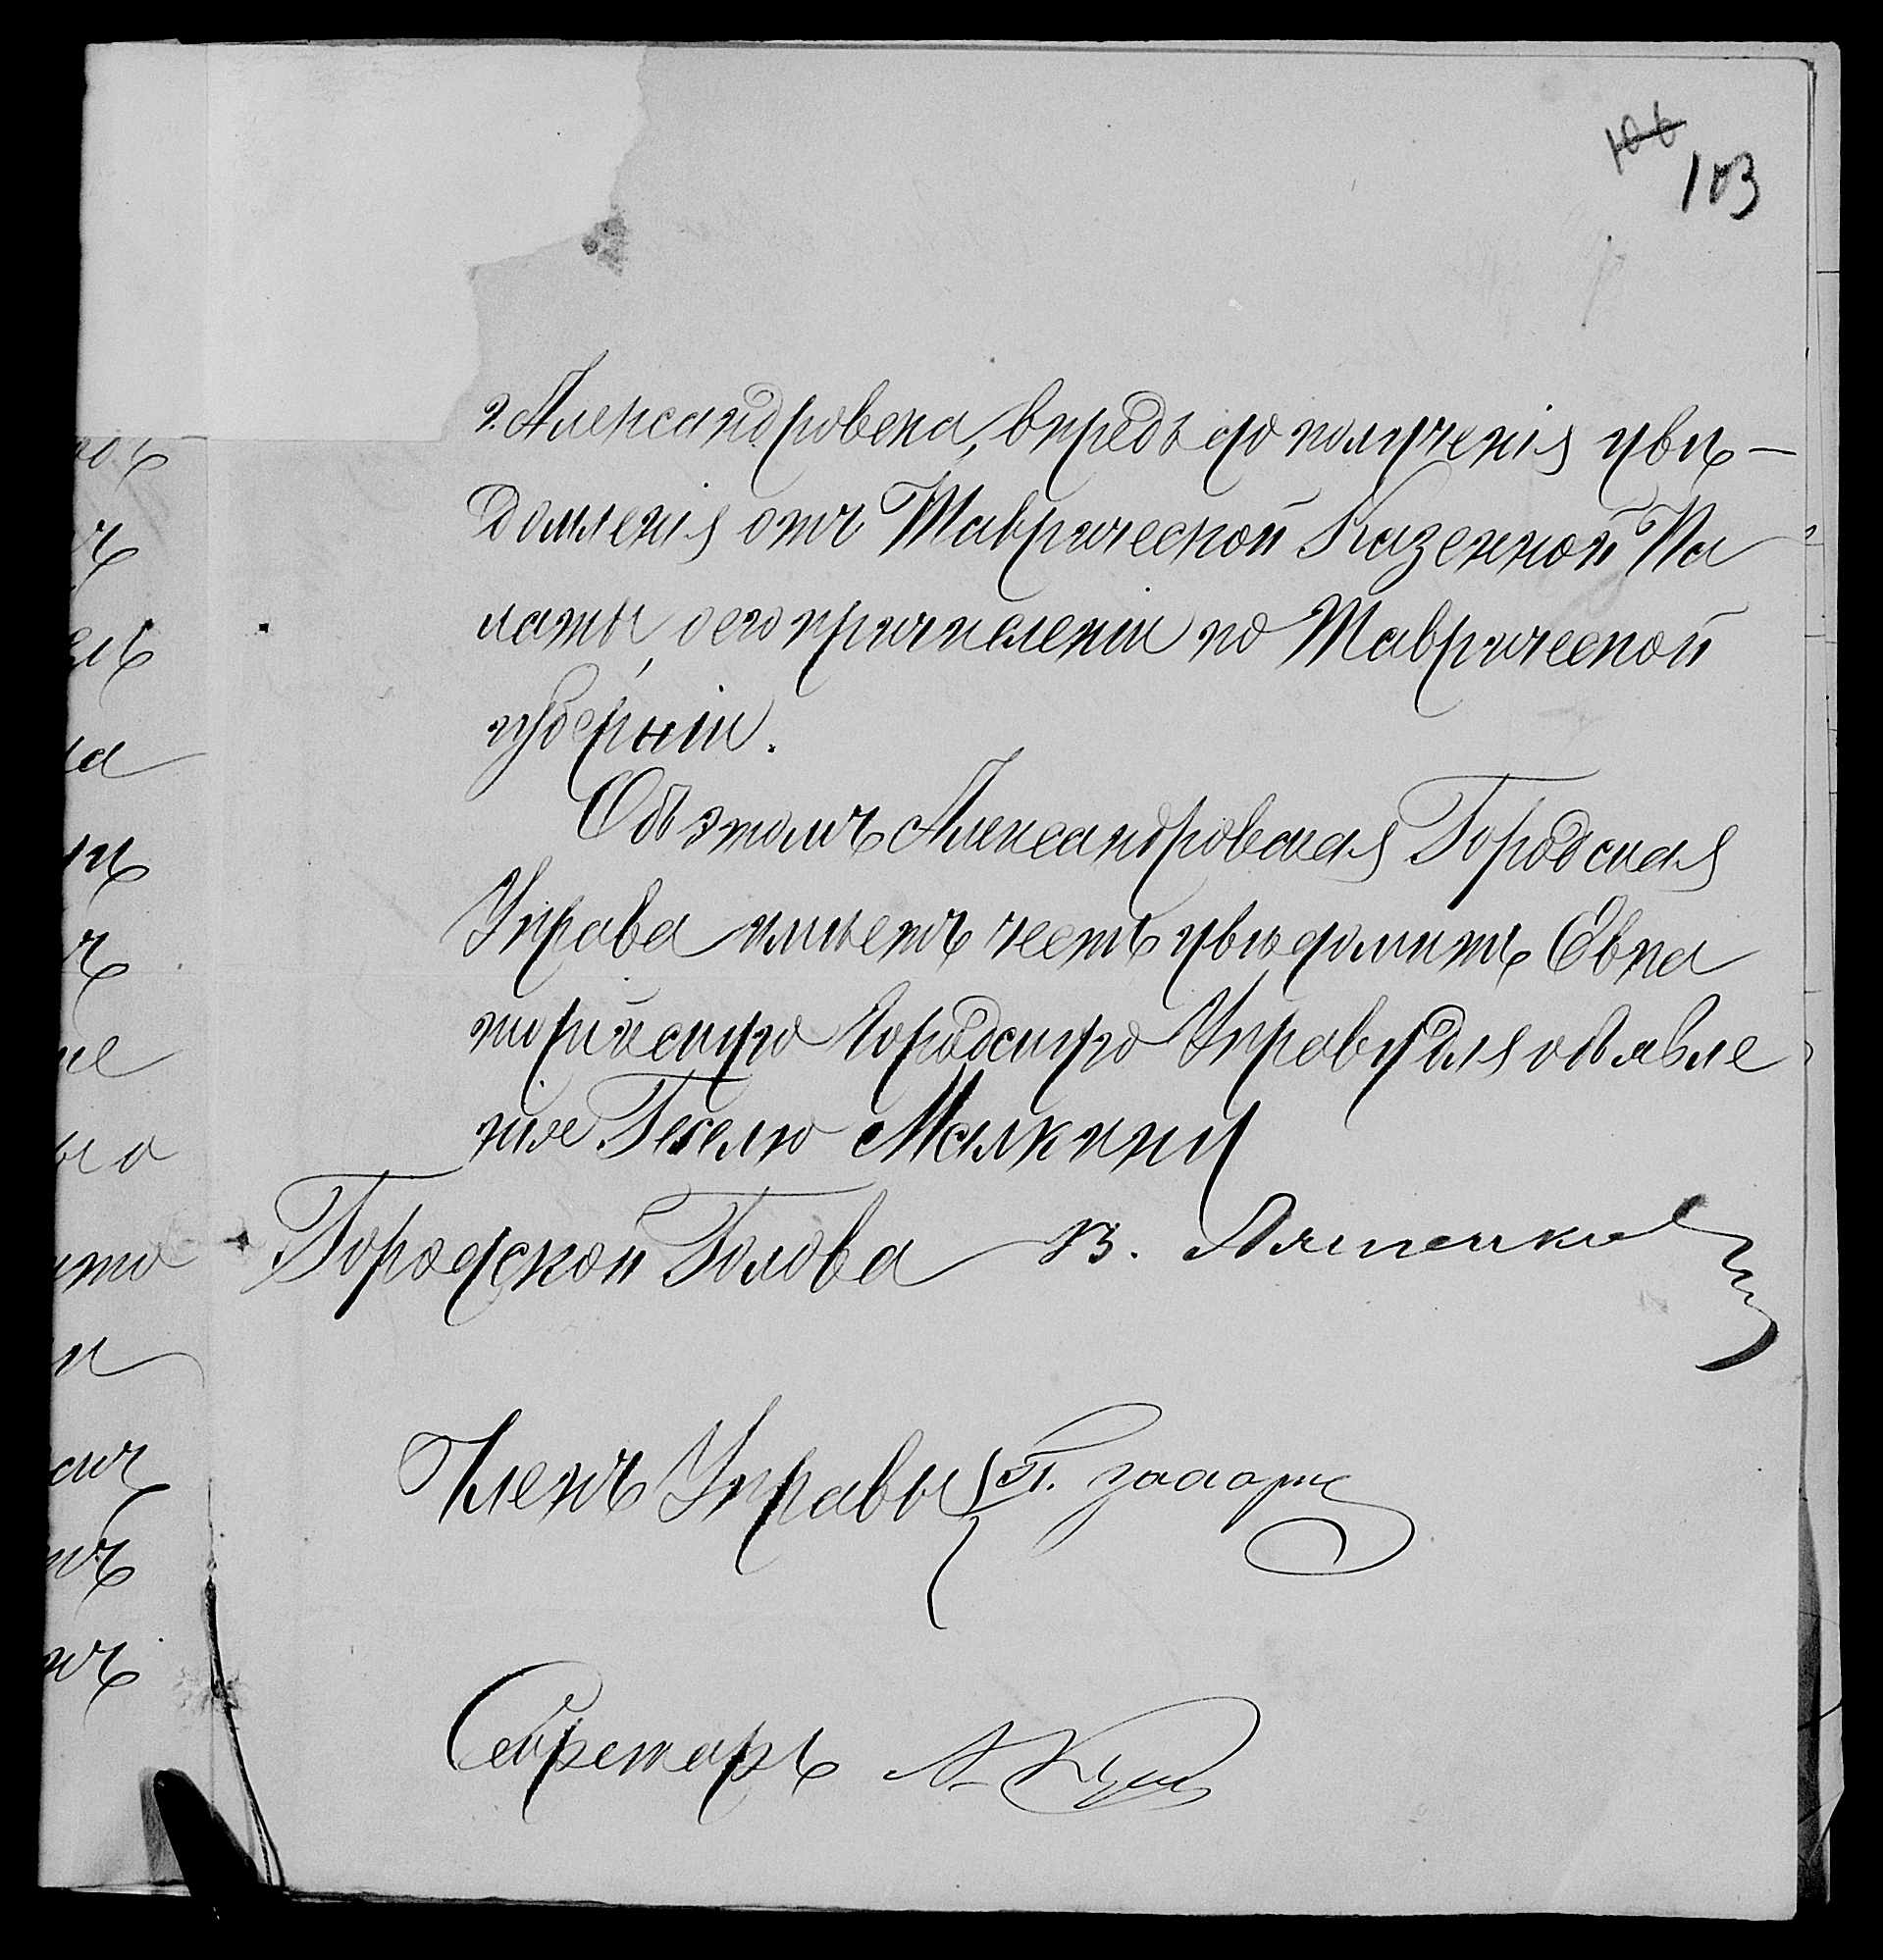 106
103
г. Александровска, впредь до полученія увѣ-
домленія отъ Таврической Казенной Па
латы, о его причисленіи по Таврической
губерніи.
Объ этомъ Александровская Городская
Управа имѣетъ честь увѣдомить Евпа
торійскую Городскую Управу для объявле
нія Гецелю Малкину
Городской Голова В.
Членъ Управы П.
Секретарь